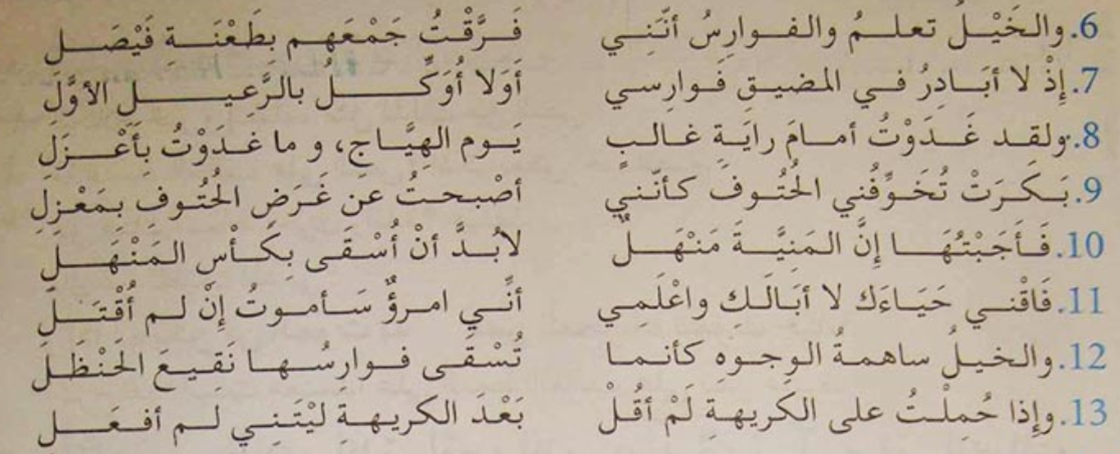 6. والخَيْلُ تعلمُ والفوارِسُ أنَّنِي فَرَّقْتُ جَمْعَهم بِطَعْنَةِ فَيْصَل
7. إِذْ لا أبَادِرُ في المضيقِ فَوارِسي أَوَلا أُوَكِّلُ بالرَّعِيلِ الأوَّلَ
8. ولقد غَدَوْتُ أمامَ رايَةِ غالبٍ يَوم الهِيَّاجِ، و ما غدَوْتُ بِأَعْزَلِ
9. بَكَرَتْ تُخَوِّفُني الحُتُوفَ كأنّني أصْبحتُ عن غَرَضِ الحُتُوفِ بِمَعْزِلِ
10. فَأجَبْتُهَا إِنَّ المَنِيَّةَ مَنْهَلٌ لابُدَّ أنْ أُسْقَى بِكَأْسِ المَنْهَلِ
11. فَاقْني حَيَاءَك لا أبَالَكِ واعْلَمِي أنِّي امرؤٌ سَأموتُ إِنْ لم أُقْتَلِ
12. والخيلُ ساهمةُ الوجوهِ كأنما تُسْقَى فوارِسُها نَقِيعَ الحَنْظَلِ
13. وإِذا حُمِلْتُ على الكَريهةِ لَمْ أقُلْ بَعْدَ الكريهةِ ليْتَنِي لَم أفعَل